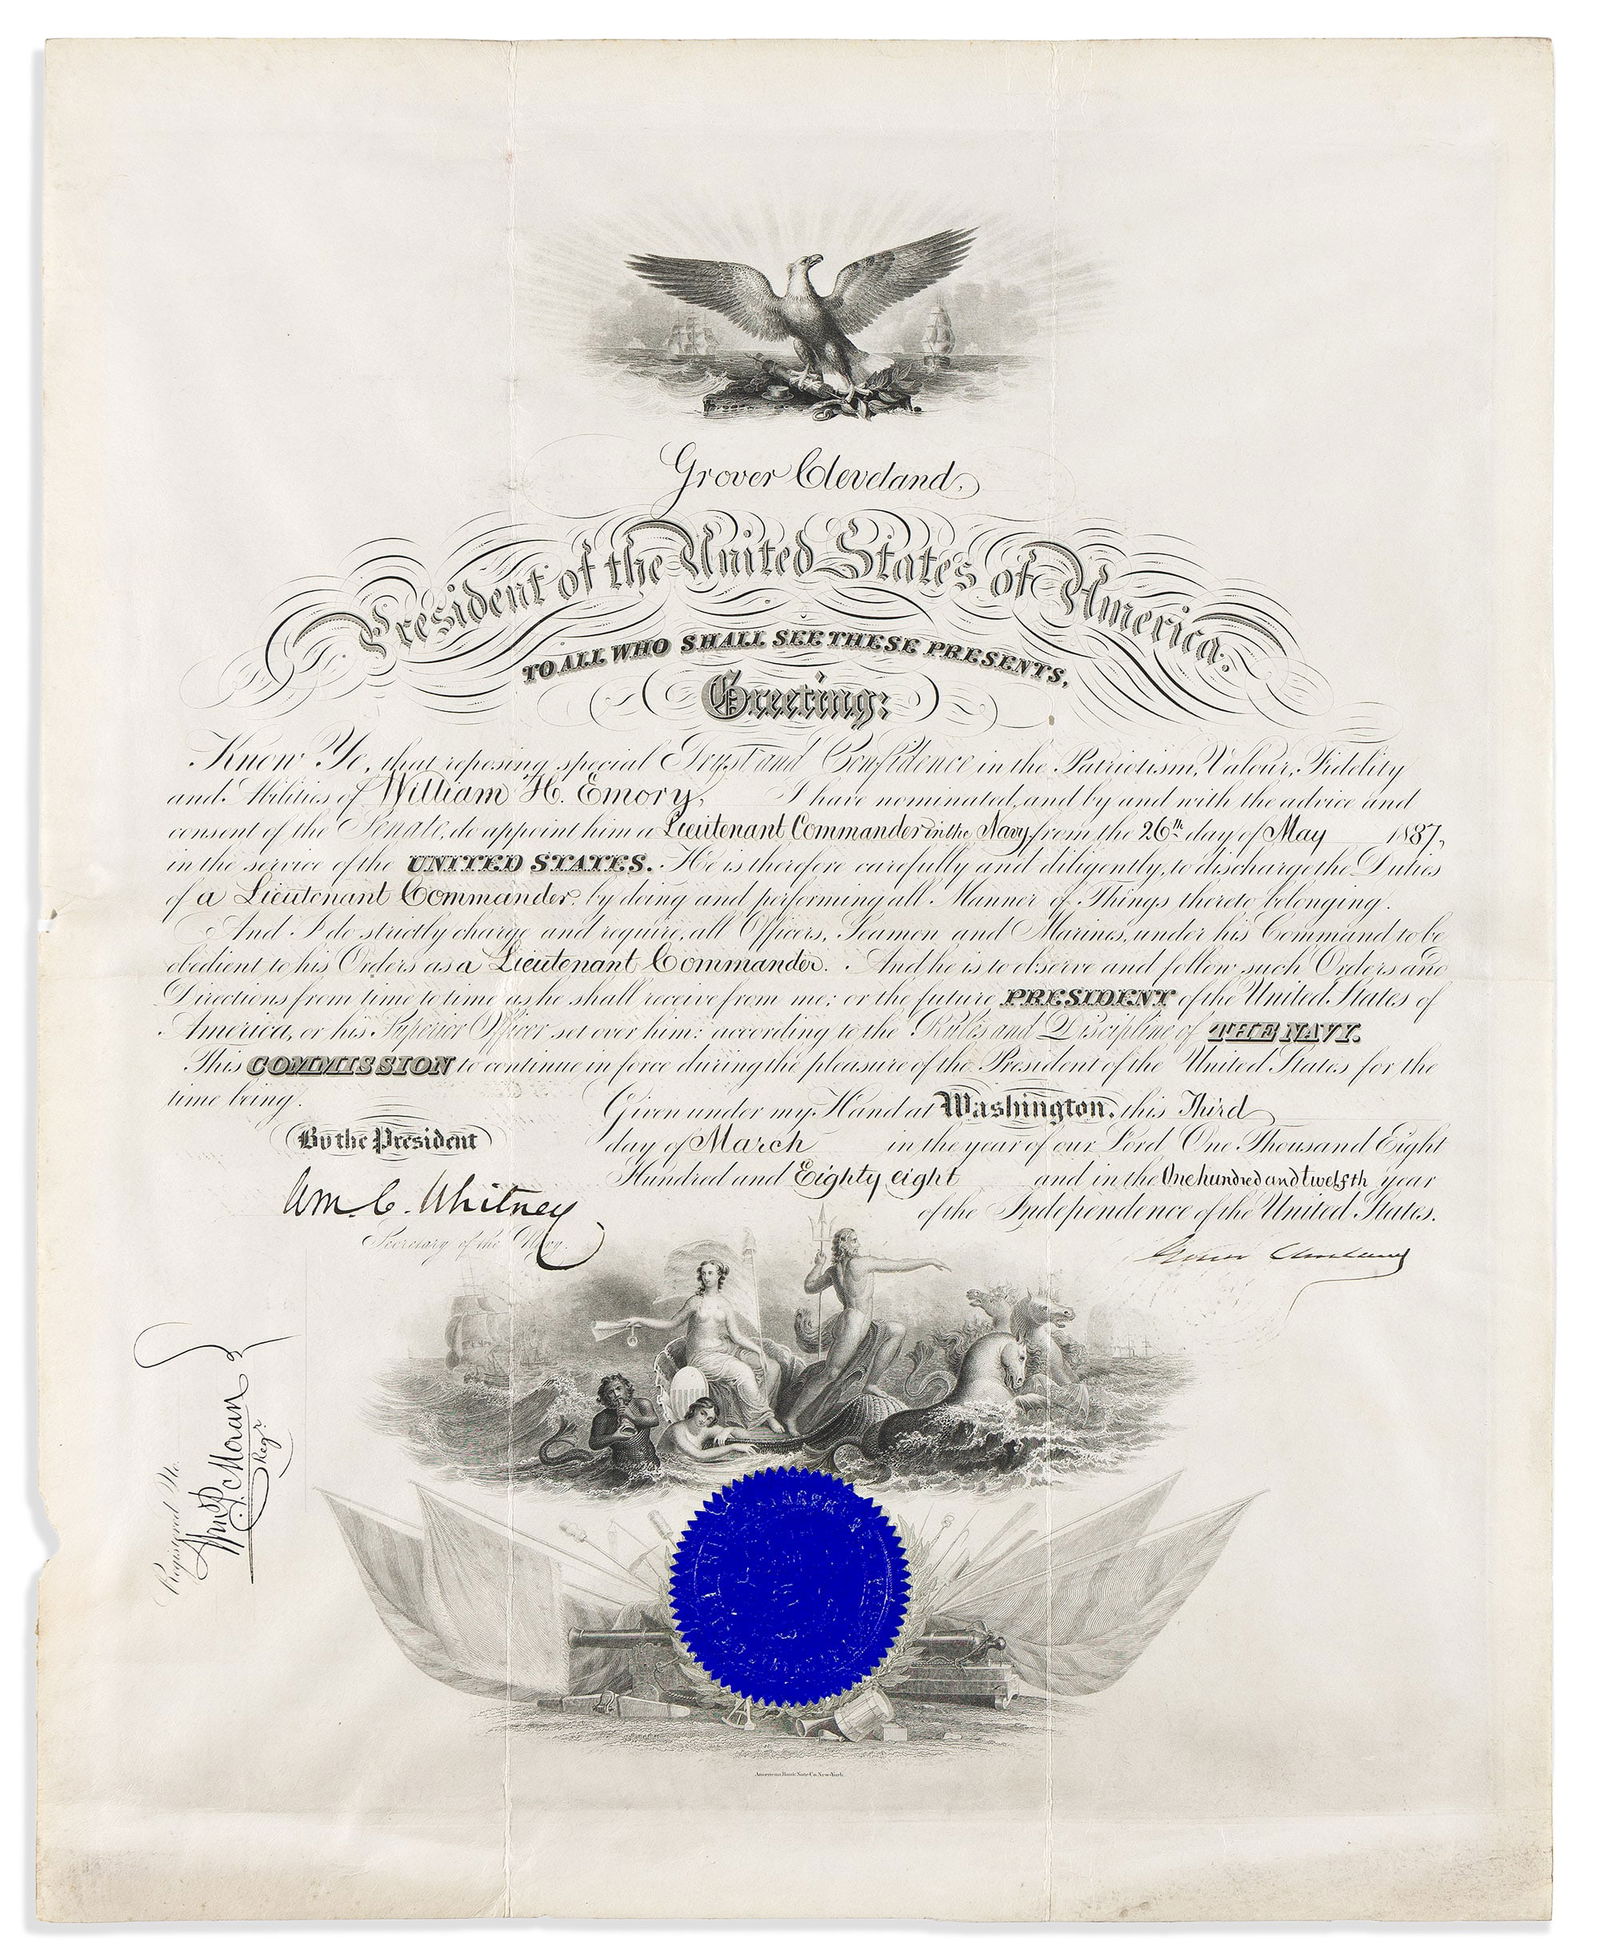 Grover Cleveland,
President of the United States of America,
TO ALL WHO SHALL SEE THESE PRESENTS,
Greeting:
Know Ye, that reposing special Trust and Confidence in the Patriotism, Valour, Fidelity
and Abilities of William H. Emory, I have nominated, and by and with the advice and
consent of the Senate, do appoint him a Lieutenant Commander in the Navy from the 26th day of May 1887,
in the service of the UNITED STATES. He is therefore carefully and diligently, to discharge the Duties
of a Lieutenant Commander by doing and performing all Manner of Things thereto belonging.
And I do strictly charge and require, all Officers, Seamen and Marines, under his Command to be
obedient to his Orders as a Lieutenant Commander. And he is to observe and follow such Orders and
Directions from time to time as he shall receive from me; or the future PRESIDENT of the United States of
America, or his Superior Officer set over him: according to the Rules and Discipline of THE NAVY.
This COMMISSION to continue in force during the pleasure of the President of the United States for the
time being.
Given under my Hand at Washington, this Third
By the President
day of March in the year of our Lord One Thousand Eight
Hundred and Eighty eight and in the One hundred and twelfth year
of the Independence of the United States.
Wm. C. Whitney
Secretary of the Navy.
Grover Cleveland
Registered No.
Wm P. Moran
Reg'r
American Bank Note Co. New-York.